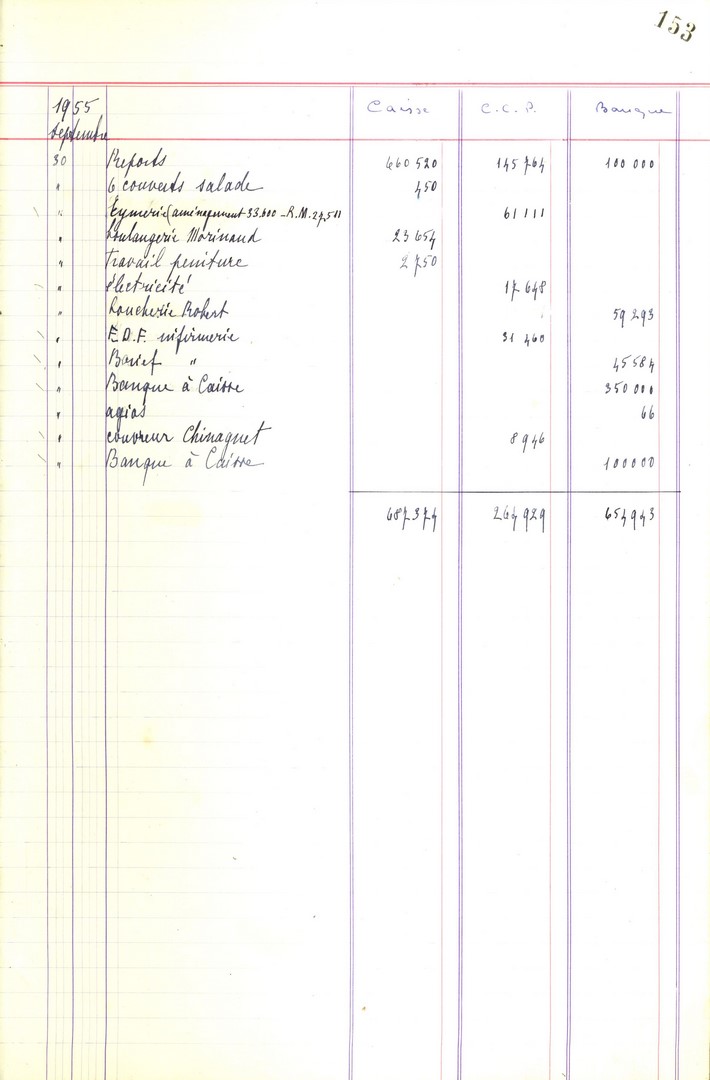 153
1955 Caisse C.C.P. Banque
septembre
30 Reports 660 520 145 764 100 000
" 6 couverts salade 450
" Eymerie (aménagement 33.600 - R.M. 27,511 61 111
" boulangerie Morinaud 23 654
" Travail peniture 2 750
" électricité 17 648
" boucherie Robert 59 293
" E.D.F. infirmerie 31 460
" " 45 584
" Banque à Caisse 350 000
" agios 66
" couvreur Chinaguet 8 946
" Banque à Caisse 100000
687 374 264 929 654 943